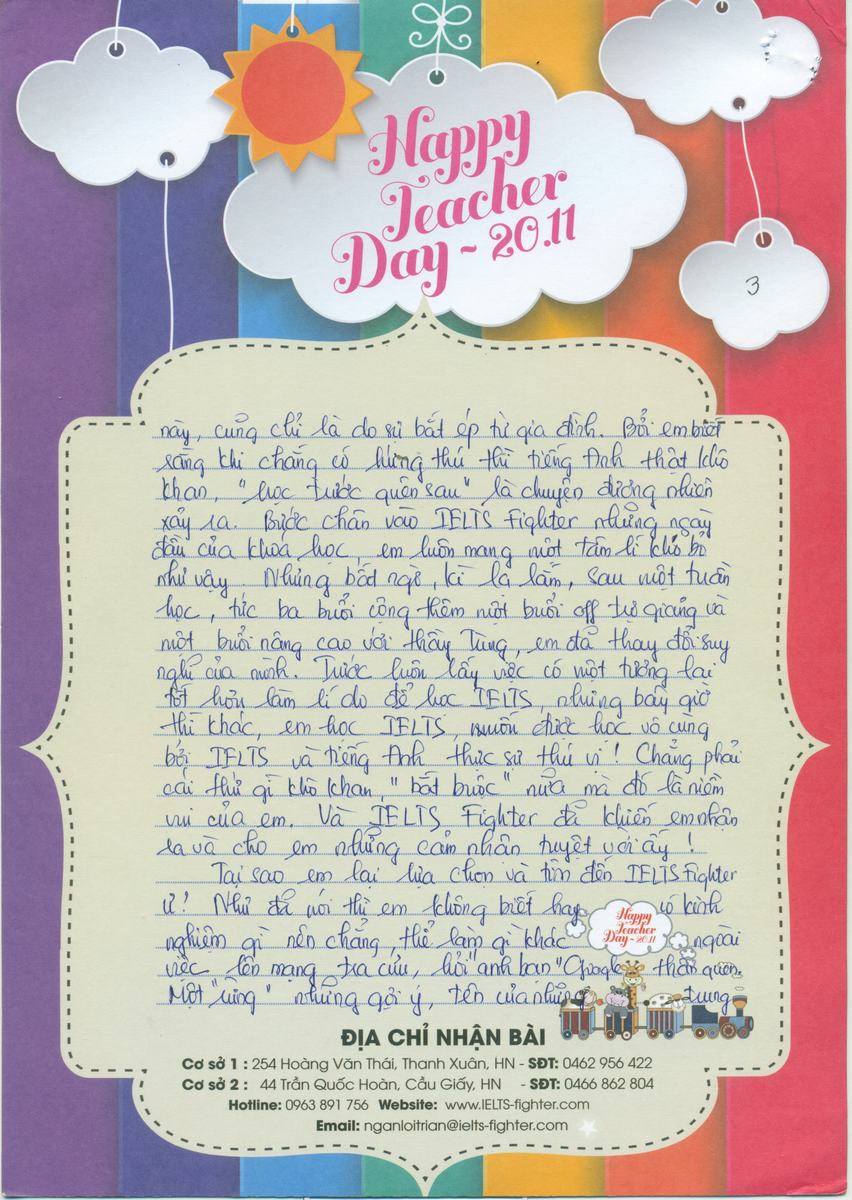 Happy
Teacher
Day ~ 20.11
3
này, cũng chỉ là do sự bắt ép từ gia đình. Bởi em biết
rằng khi chẳng có hứng thú thì tiếng Anh thật khô
khan, "học trước quên sau" là chuyện đương nhiên
xảy ra. Bước chân vào IELTS Fighter những ngày
đầu của khoá học, em luôn mang một tâm lí khó bỏ
như vậy. Nhưng bất ngờ, kì lạ lắm, sau một tuần
học, tức ba buổi cộng thêm một buổi off tư giang và
một buổi nâng cao với thầy Tùng, em đã thay đổi suy
nghĩ của mình. Trước luôn lấy việc có một tương lai
tốt hơn làm lí do để học IELTS, nhưng bây giờ
thì khác, em học IELTS, muốn được học vô cùng
bởi IELTS và tiếng Anh thực sự thú vị! Chẳng phải
cái thứ gì khô khan, "bắt buộc" nữa mà đó là niềm
vui của em. Và IELTS Fighter đã khiến em nhận
ra và cho em những cảm nhận tuyệt vời ấy!
Tại sao em lại lựa chọn và tìm đến IELTS Fighter
ư? Như đã nói thì em không biết hay có kinh
nghiệm gì nên chẳng thể làm gì khác ngoài
việc lên mạng tra cứu, hỏi "anh bạn "Google" thân quen.
Một "rừng" những gợi ý, tên của những trung
Happy
Teacher
Day ~ 20.11
ĐỊA CHỈ NHẬN BÀI
Cơ sở 1 : 254 Hoàng Văn Thái, Thanh Xuân, HN - SĐT: 0462 956 422
Cơ sở 2 : 44 Trần Quốc Hoàn, Cầu Giấy, HN - SĐT: 0466 862 804
Hotline: 0963 891 756 Website: www.IELTS-fighter.com
Email: nganloitrian@ielts-fighter.com